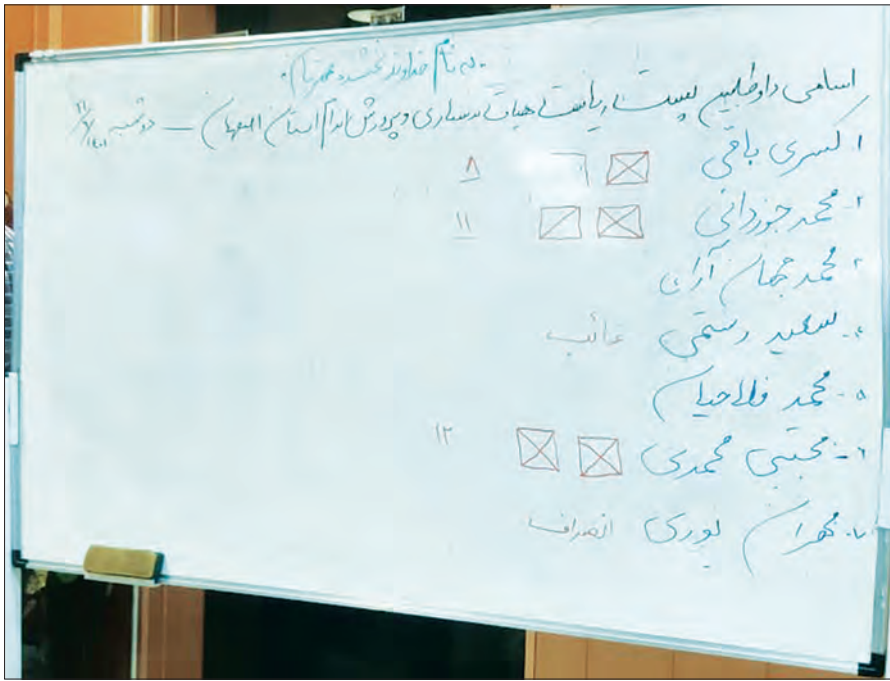 به نام خداوند بخشنده مهربان
اسامی داوطلبین پست ریاست هیات بدنسازی و پرورش اندام استان اصفهان — دوشنبه
۱ کسری باقی ۸
۲- محمد جوزدانی ۱۱
۳ محمد جهان آرای
۴- سعید رستمی غائب
۵- محمد فلاحیان
۶- مجتبی محمدی ۱۲
۷- مهران نوری انصراف